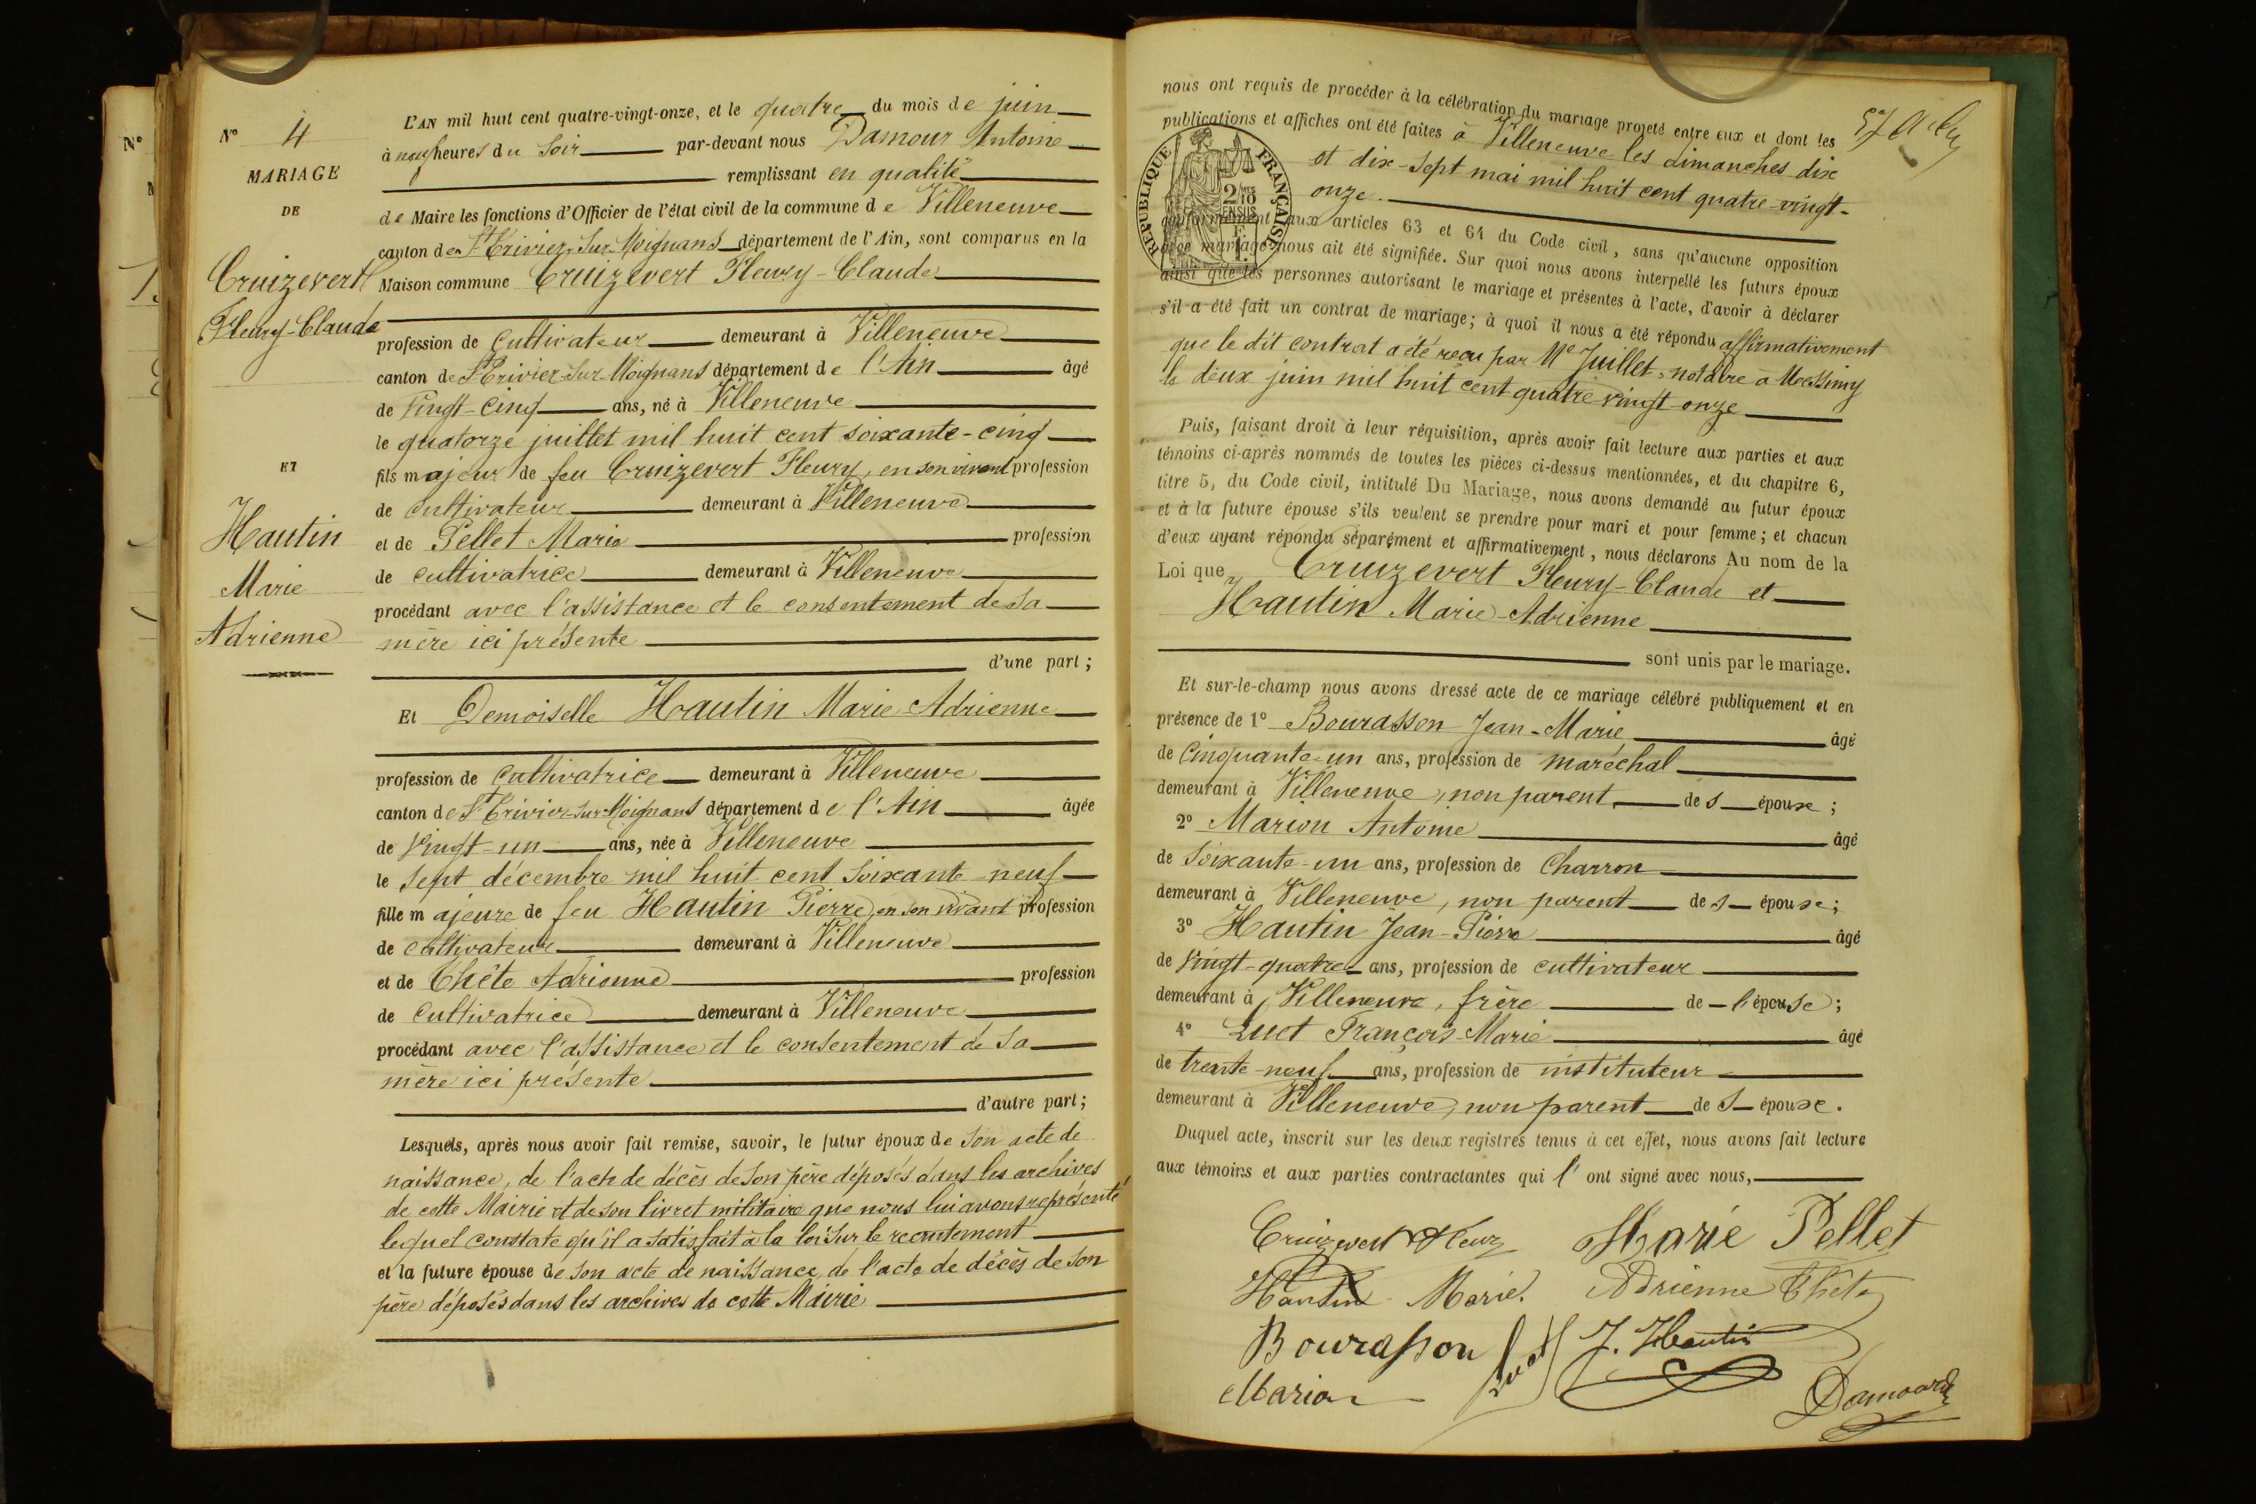 N° 4
MARIAGE
DE
Cruizevert
Fleury-Claude
ET
Hautin
Marie
Adrienne
L'AN mil huit cent quatre-vingt-onze, et le quatre du mois de juin
à neuf heures du soir par-devant nous Damour Antoine
remplissant en qualité
de Maire les fonctions d'Officier de l'état civil de la commune de Villeneuve
canton de St Trivier-sur-Moignans département de l'Ain, sont comparus en la
Maison commune Cruizevert Fleury-Claude
profession de cultivateur demeurant à Villeneuve
canton de St Trivier-sur-Moignans département de l'Ain âgé
de vingt-cinq ans, né à Villeneuve
le quatorze juillet mil huit cent soixante-cinq
fils majeur de feu Cruizevert Fleury, en son vivant profession
de cultivateur demeurant à Villeneuve
et de Pellet Marie profession
de cultivatrice demeurant à Villeneuve
procédant avec l'assistance et le consentement de sa
mère ici présente
d'une part;
Et Demoiselle Hautin Marie Adrienne
profession de cultivatrice demeurant à Villeneuve
canton de St Trivier-sur-Moignans département de l'Ain âgée
de vingt-un ans, née à Villeneuve
le sept décembre mil huit cent soixante-neuf
fille majeure de feu Hautin Pierre, en son vivant profession
de cultivateur demeurant à Villeneuve
et de Thête Adrienne profession
de cultivatrice demeurant à Villeneuve
procédant avec l'assistance et le consentement de sa
mère ici présente
d'autre part;
Lesquels, après nous avoir fait remise, savoir, le futur époux de son acte de
naissance, de l'acte de décès de son père déposés dans les archives
de cette Mairie et de son livret militaire que nous lui avons représenté
lequel constate qu'il a satisfait à la loi sur le recrutement
et la future épouse de son acte de naissance, de l'acte de décès de son
père déposés dans les archives de cette Mairie
nous ont requis de procéder à la célébration du mariage projeté entre eux et dont les
publications et affiches ont été faites à Villeneuve les dimanches dix
et dix-sept mai mil huit cent quatre-vingt-
onze.
RÉPUBLIQUE FRANÇAISE
conformément aux articles 63 et 64 du Code civil, sans qu'aucune opposition
à ce mariage nous ait été signifiée. Sur quoi nous avons interpellé les futurs époux
ainsi que les personnes autorisant le mariage et présentes à l'acte, d'avoir à déclarer
s'il a été fait un contrat de mariage; à quoi il nous a été répondu affirmativement
que le dit contrat a été reçu par Me Juillet, notaire à Messimy
le deux juin mil huit cent quatre-vingt-onze
Puis, faisant droit à leur réquisition, après avoir fait lecture aux parties et aux
témoins ci-après nommés de toutes les pièces ci-dessus mentionnées, et du chapitre 6,
titre 5, du Code civil, intitulé Du Mariage, nous avons demandé au futur époux
et à la future épouse s'ils veulent se prendre pour mari et pour femme; et chacun
d'eux ayant répondu séparément et affirmativement, nous déclarons Au nom de la
Loi que Cruizevert Fleury-Claude et
Hautin Marie-Adrienne
sont unis par le mariage.
Et sur-le-champ nous avons dressé acte de ce mariage célébré publiquement et en
présence de 1° Bourasson Jean-Marie âgé
de cinquante-un ans, profession de maréchal
demeurant à Villeneuve, non parent des époux;
2° Marion Antoine âgé
de soixante-un ans, profession de charron
demeurant à Villeneuve, non parent des époux;
3° Hautin Jean-Pierre âgé
de vingt-quatre ans, profession de cultivateur
demeurant à Villeneuve, frère de l'épouse;
4° Luct François-Marie âgé
de trente-neuf ans, profession de instituteur
demeurant à Villeneuve, non parent des époux.
Duquel acte, inscrit sur les deux registres tenus à cet effet, nous avons fait lecture
aux témoins et aux parties contractantes qui l'ont signé avec nous,
Cruizevert Fleury Marie Pellet
Hautin Marie. Adrienne Thête
Bourasson J. Hautin
Marion Luct
Damour